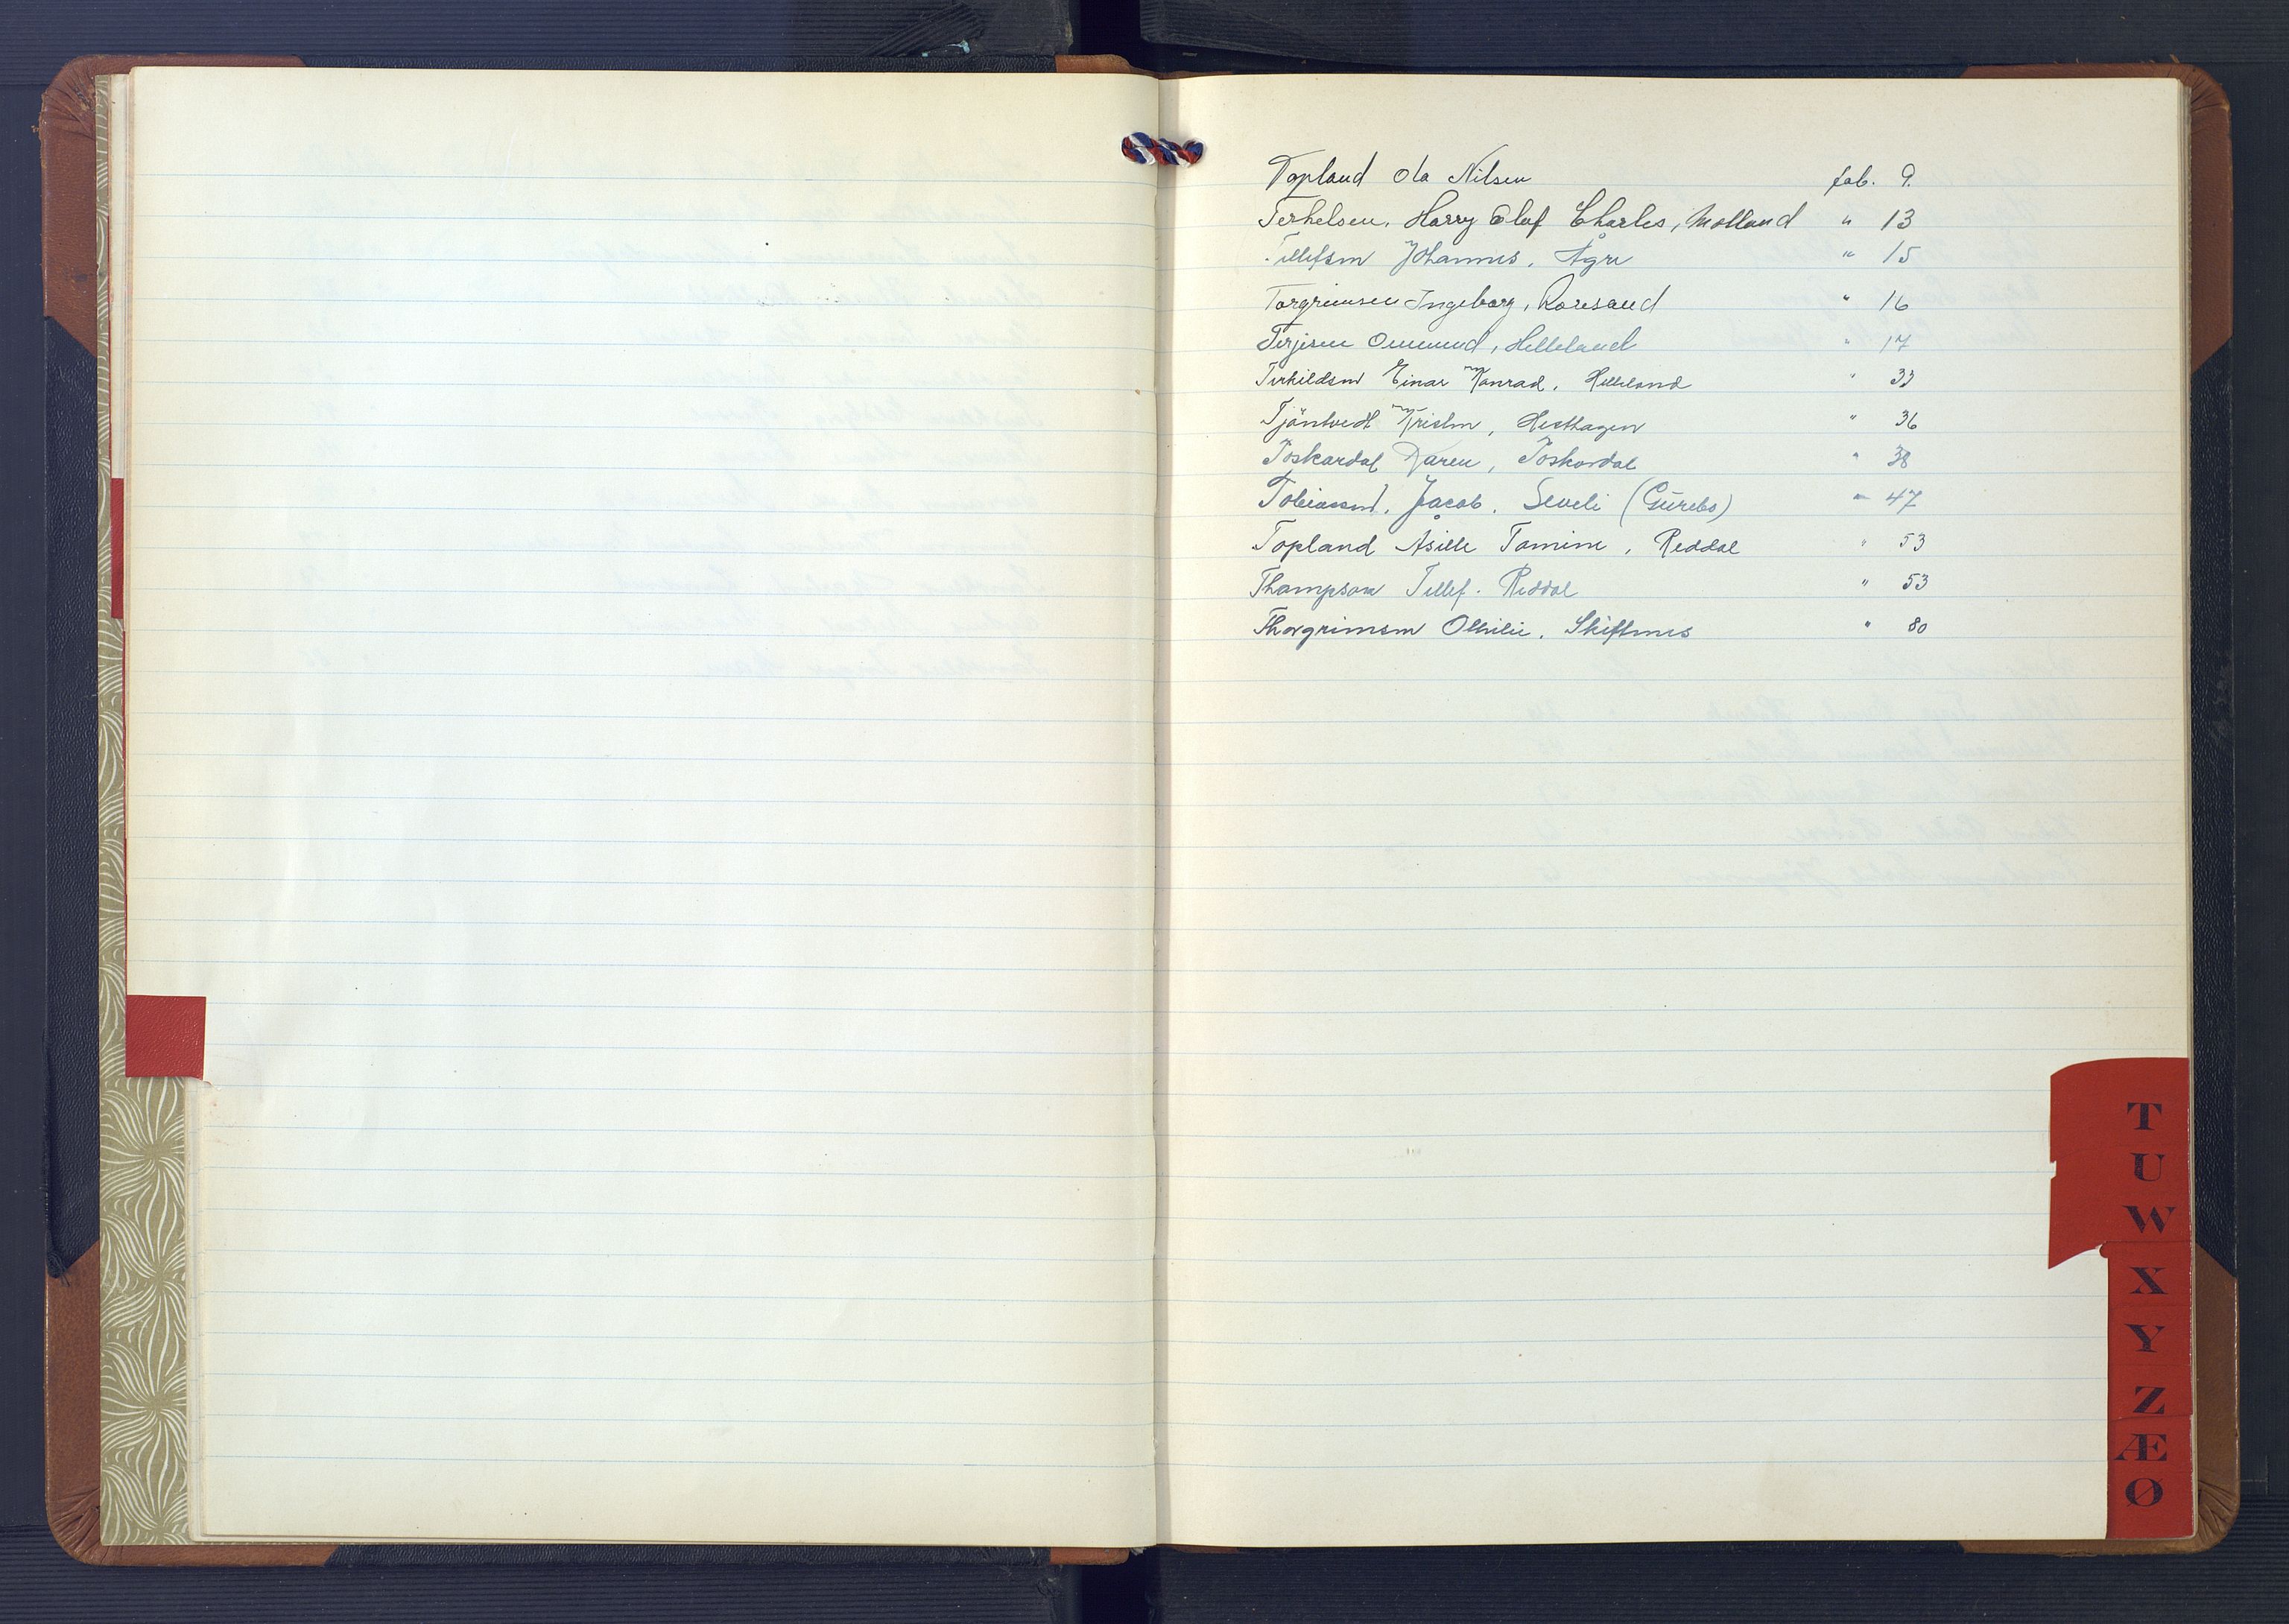 Topland Ola Nilsen fab. 9.
Terkelsen, Harry Olaf Charles, Molland " 13
Tellefsen Johannes, Ågre " 15
Torgrimsen Ingeborg, Roresand " 16
Terjesen Ommund, Helleland " 17
Terkildsen Einar Konrad, Helleland " 33
Tjäntvedt Kristen, Hesthagen " 36
Toskardal Karen, Toskardal " 38
Tobiassen, Jacob, Seveli (Gurebo) " 47
Topland Åsille Tomine, Reddal " 53
Thompson Tellef. Reddal " 53
Thorgrimsen Othilie, Skiftenes " 80
T
U
W
X
Y
Z
Æ
Ø